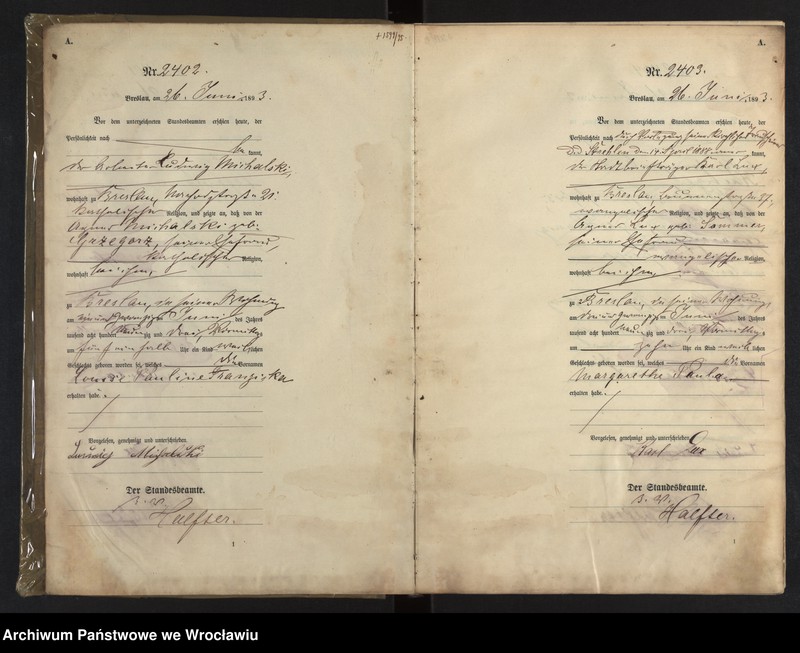 A.
† 1893/95
Nr. 2402.
Breslau, am 26. Juni 1893.
Vor dem unterzeichneten Standesbeamten erschien heute, der
Persönlichkeit nach
be kannt,
der Arbeiter Ludwig Michalski,
wohnhaft zu Breslau, 21.
katholischer Religion, und zeigte an, daß von der
Agnes Michalski geb.
Grzegorz, seiner Ehefrau,
katholischer Religion,
wohnhaft bei ihm,
zu Breslau, in seiner Wohnung
am Juni des Jahres
tausend acht hundert neunzig und drei, Vormittags
um fünf ein halb Uhr ein Kind weiblichen
Geschlechts geboren worden sei, welches die Vornamen
Louise Pauline Franziska
erhalten habe.
Vorgelesen, genehmigt und unterschrieben.
Ludwig Michalski
Der Standesbeamte.
I. V.
Halfter.
1
A.
Nr. 2403.
Breslau, am 26. Juni 1893.
Vor dem unterzeichneten Standesbeamten erschien heute, der
Persönlichkeit nach durch Vorlegung seines
kannt,
der Karl Lux,
wohnhaft zu Breslau,
evangelischer Religion, und zeigte an, daß von der
Agnes Lux geb. Sommer,
seiner Ehefrau
evangelischer Religion,
wohnhaft bei ihm,
zu Breslau, in seiner Wohnung
am drei und zwanzigsten Juni des Jahres
tausend acht hundert neunzig und drei, Vormittags
um zehn Uhr ein Kind weiblichen
Geschlechts geboren worden sei, welches die Vornamen
Margarethe Paula
erhalten habe.
Vorgelesen, genehmigt und unterschrieben.
Karl Lux
Der Standesbeamte.
I. V.
Halfter.
1
Archiwum Państwowe we Wrocławiu